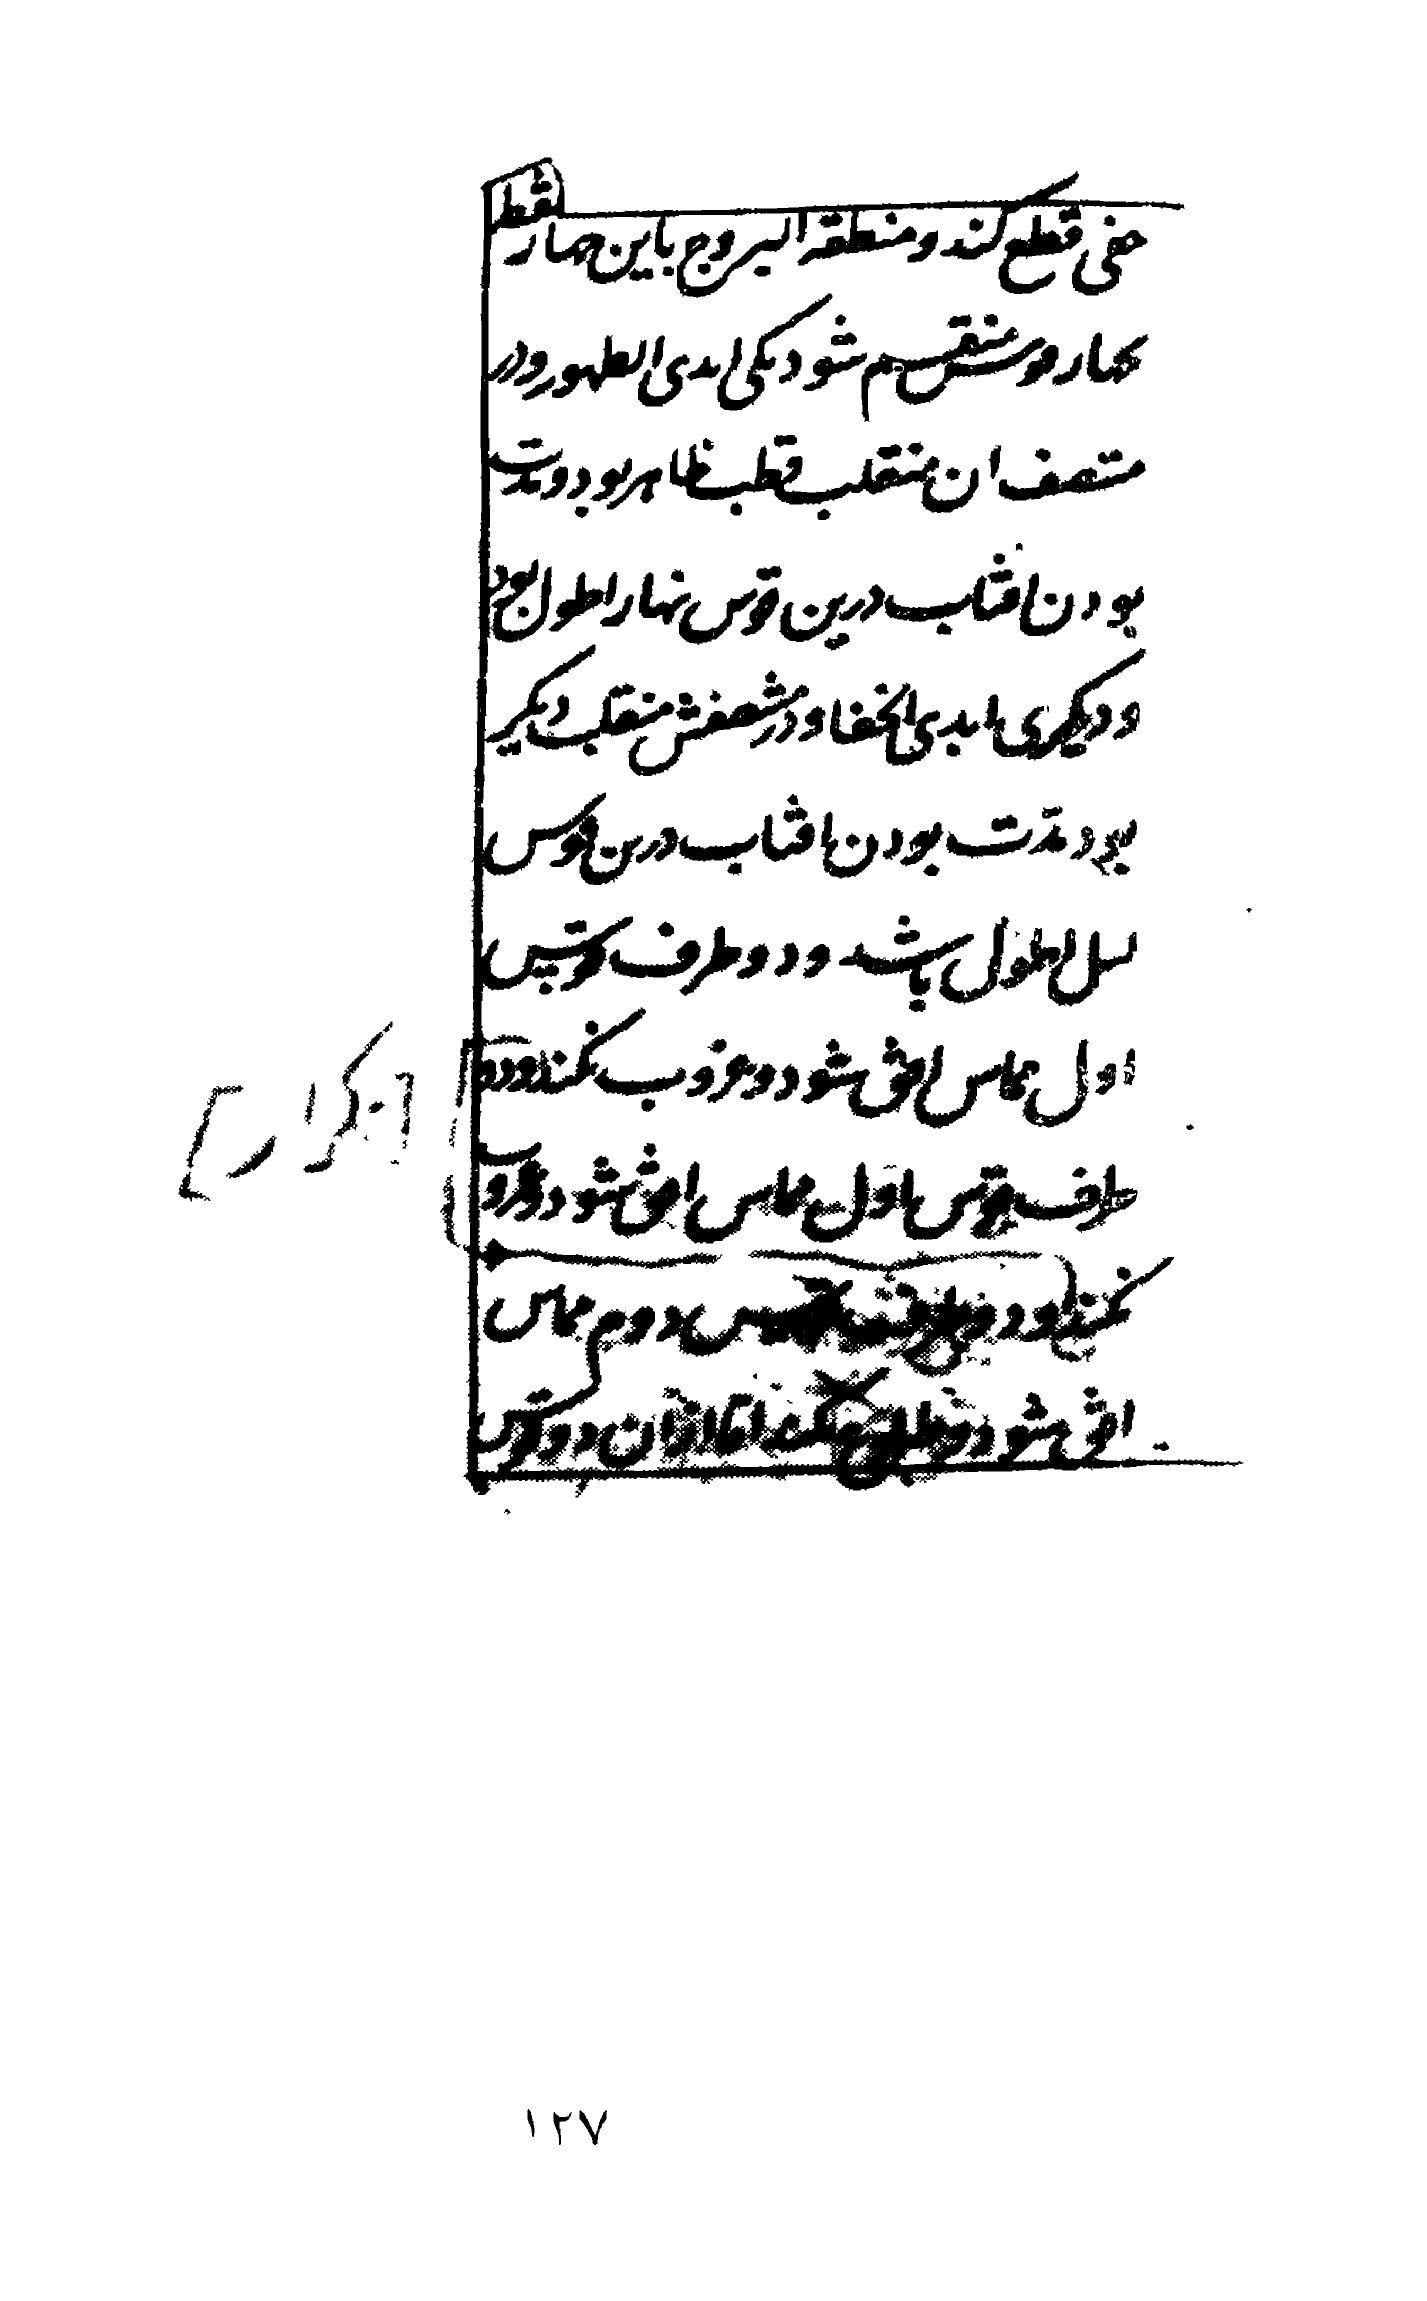 خفی قطع کند و منطقه البروج باین چهار نقطه
بچهار قوس منقسم شود یکی ابدی الظهور و در
منتصف ان منقلب قطب ظاهر بود و مدت
بودن افتاب درین قوس نهار اطول بود
و دیگری ابدی الخفا و در منتصفش منقلب دیگر
بود مدت بودن افتاب درین قوس
لیل اطول باشد و دو طرف قوس
اول مماس افق شود و غروب نکند و دو
طرف قوس اول مماس افق شود و غروب
نکند و دو طرف قوس دوم مماس
افق شود و طلوع نکند اما ازان دو قوس
[تکرار]
۱۲۷